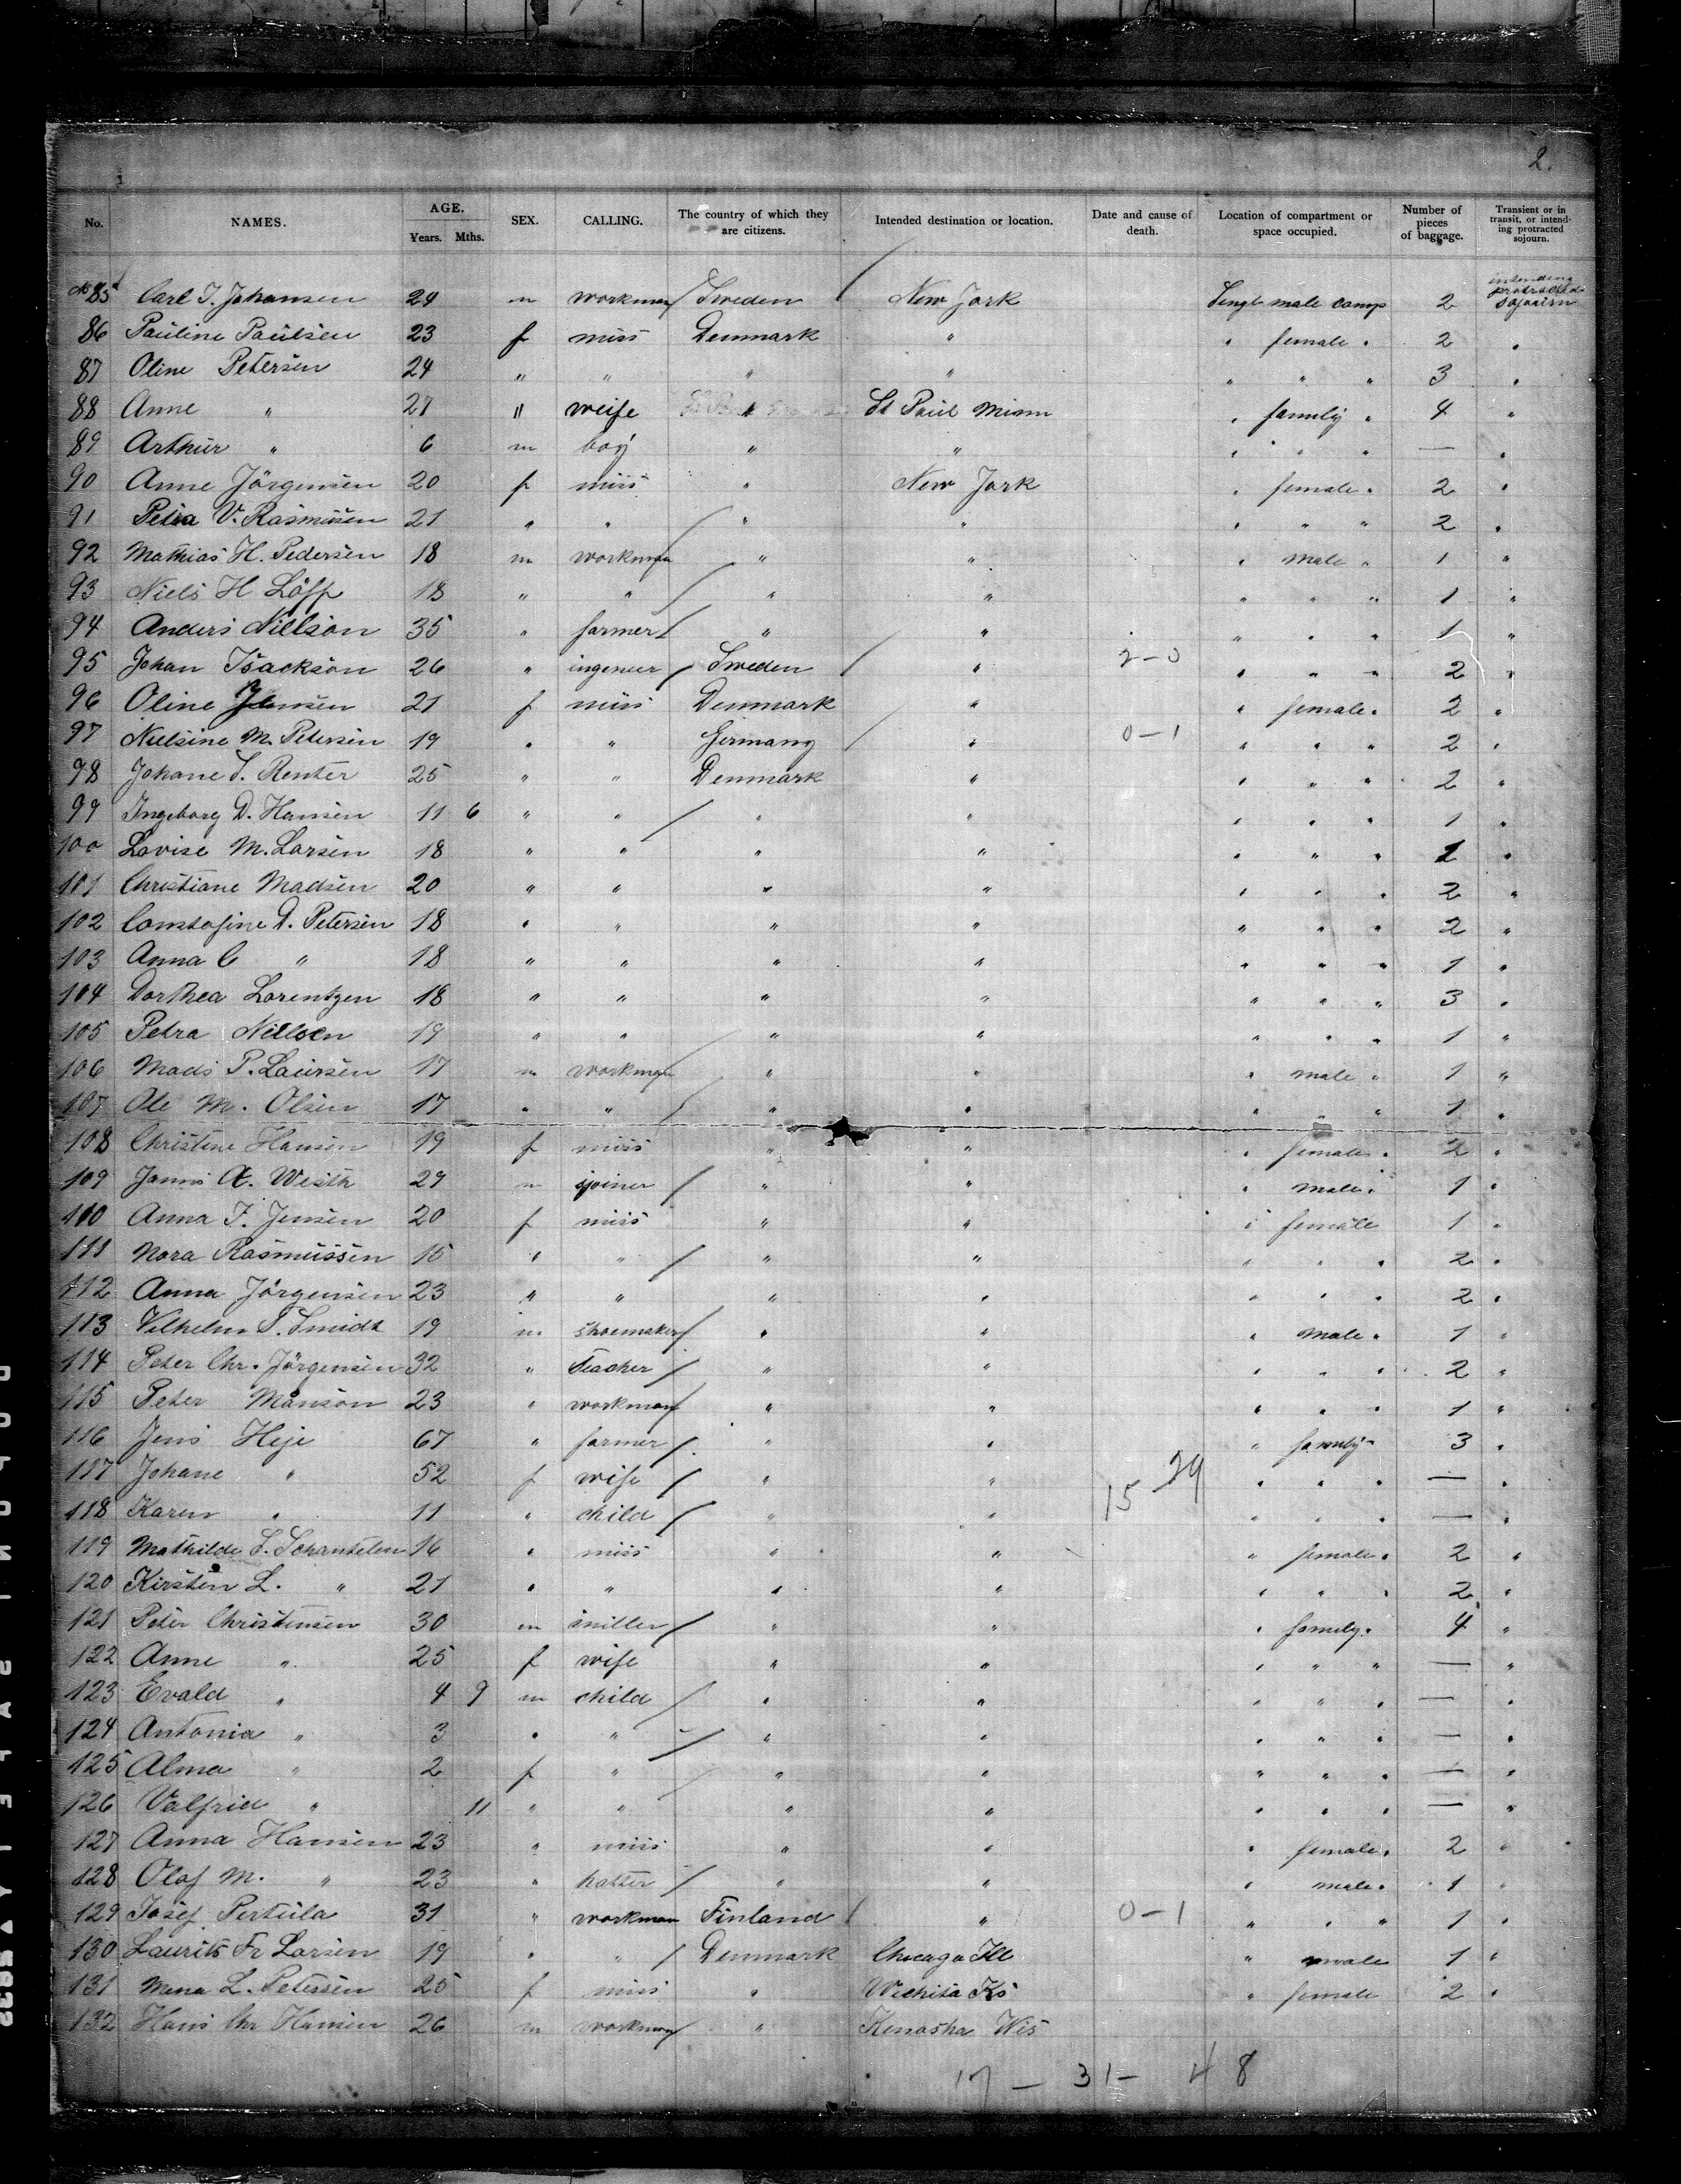 2.
No. NAMES. AGE. Years. Mths. SEX. CALLING. The country of which they are citizens. Intended destination or location. Date and cause of death. Location of compartment or space occupied. Number of pieces of baggage. Transient or in transit, or intending protracted sojourn.
No 85 Carl J. Johansen 24 m workman Sweden New Jork Single male comp 2 intending protracted sojourn
86 Pauline Paulsen 23 f miss Denmark " " female " 2 "
87 Oline Petersen 24 " " " " " " " 3 "
88 Anne " 27 " weife " St Paul Minn " family " 4 "
89 Arthur " 6 m boy " " " " " — "
90 Anne Jörgensen 20 f miss " New Jork " female " 2 "
91 Petra V. Rasmussen 21 " " " " " " " 2 "
92 Mathias H. Pedersen 18 m workman " " " male " 1 "
93 Niels H Löff 18 " " " " " " " 1 "
94 Anders Nillson 35 " farmer " " " " " 1 "
95 Johan Isackson 26 " ingeneer Sweden " 2-0 " " " 2 "
96 Oline Jensen 21 f miss Denmark " " female " 2 "
97 Nielsine M. Petersen 19 " " Germany " 0-1 " " " 2 "
98 Johane S. Renter 25 " " Denmark " " " " 2 "
99 Ingeborg D. Hansen 11 6 " " " " " " " 1 "
100 Lovise M. Larsen 18 " " " " " " " 1 "
101 Christiane Madsen 20 " " " " " " " 2 "
102 Constofine D. Petersen 18 " " " " " " " 2 "
103 Anna C " 18 " " " " " " " 1 "
104 Dorthea Lorentzen 18 " " " " " " " 3 "
105 Petra Nielsen 19 " " " " " " " 1 "
106 Mads P. Laursen 17 m workman " " " male " 1 "
107 Ole M. Olsen 17 " " " " " " " 1 "
108 Christine Hansen 19 f miss " " " female " 2 "
109 Janus A. Westh 29 m joiner " " " male " 1 "
110 Anna F. Jensen 20 f miss " " " female 1 "
111 Nora Rasmussen 15 " " " " " " " 2 "
112 Anna Jörgensen 23 " " " " " " " 2 "
113 Vilhelm T. Smidt 19 m shoemaker " " " male " 1 "
114 Peter Chr. Jörgensen 32 " Teacher " " " " " 2 "
115 Peter Månson 23 " workman " " " " " 1 "
116 Jens Heje 67 " farmer " " " family " 3 "
117 Johane " 52 f wife " " 15-29 " " " — "
118 Karen " 11 " child " " " " " — "
119 Mathilde L. Schantelen 16 " miss " " " female " 2 "
120 Kirsten L. " 21 " " " " " " " 2 "
121 Peter Christensen 30 m miller " " " family " 4 "
122 Anne " 25 f wife " " " " " — "
123 Evald " 4 9 m child " " " " " — "
124 Antonia " 3 " " " " " " " — "
125 Alma " 2 f " " " " " " — "
126 Valfrid " 11 " " " " " " " — "
127 Anna Hansen 23 " miss " " " female " 2 "
128 Olaf M. " 23 " hatter " " " male " 1 "
129 Josef Pertula 31 " workman Finland " 0-1 " " " 1 "
130 Laurits Fr Larsen 19 " " Denmark Chicago Ill " male 1 "
131 Mana L. Petersen 25 f miss " Wichita Ks " female 2 "
132 Hans Chr Hansen 26 m workman " Kenosha Wis
17 — 31 — 48